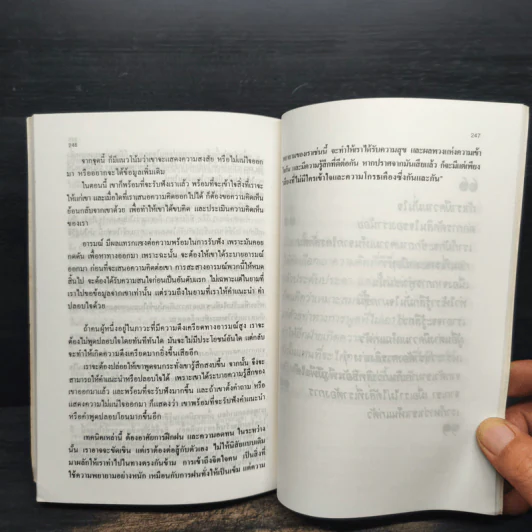 246
จากชุดนี้ ก็มีแนวโน้มว่าเขาจะแสดงความสงสัย หรือไม่แน่ใจออก
มา หรืออยากจะได้ข้อมูลเพิ่มเติม
ในตอนนี้ เขาก็พร้อมที่จะรับฟังเราแล้ว พร้อมที่จะเข้าใจสิ่งที่เราจะ
ให้แก่เขา และเมื่อใดที่เราเสนอความคิดออกไปได้ ก็ต้องขอความคิดเห็น
ย้อนกลับจากเขาด้วย เพื่อทำให้เขาได้ขบคิด และประเมินความคิดเห็น
ของเรา
อารมณ์ มีผลแทรกแซงต่อความพร้อมในการรับฟัง เพราะมันคอย
กดดัน เพื่อหาทางออกมา เพราะฉะนั้น จะต้องให้เขาได้ระบายอารมณ์
ออกมา ก่อนที่จะเสนอความคิดต่อเขา การสะสางอารมณ์พวกนี้ให้หมด
สิ้นไป จะต้องได้รับความสนใจก่อนเป็นอันดับแรก ไม่เฉพาะแต่ในยามที่
เราไปขอข้อมูลจากเขาเท่านั้น แต่รวมถึงในยามที่เราให้คำแนะนำ คำ
ปลอบใจด้วย
ถ้าคนผู้หนึ่งอยู่ในภาวะที่มีความตึงเครียดทางอารมณ์สูง เราจะ
ต้องไม่พูดปลอบใจโดยทันทีทันใด มันจะไม่มีประโยชน์อันใด แต่กลับ
จะทำให้เกิดความตึงเครียดมากยิ่งขึ้นเสียอีก
เราจะต้องปล่อยให้เขาพูดจนกระทั่งเขารู้สึกสงบขึ้น จากนั้น จึงจะ
สามารถให้คำแนะนำหรือปลอบใจได้ เพราะเขาได้ระบายความรู้สึกของ
เขาออกมาแล้ว และพร้อมที่จะรับฟังมากขึ้น และถ้าเขาตั้งคำถาม หรือ
แสดงความไม่แน่ใจออกมา ก็แสดงว่า เขาพร้อมที่จะรับฟังคำแนะนำ
หรือคำพูดปลอบโยนมากขึ้นอีก
เทคนิคเหล่านี้ ต้องอาศัยการฝึกฝน และความอดทน ในระหว่าง
นั้น เราอาจจะขัดเขิน แต่เราต้องต่อสู้กับตัวเอง ไม่ให้นิสัยแบบเดิม
มาผลักให้เราทำไปในทางตรงกันข้าม การเข้าถึงจิตใจคน เป็นสิ่งที่
ใช้ความพยายามอย่างหนัก เหมือนกับการฝนทั่งให้เป็นเข็ม แต่ความ
247
ของเราเช่นนี้ จะทำให้เราได้รับความสุข และผลพวงแห่งความเข้า
และมีความรู้สึกที่ดีต่อกัน หากปราศจากมันเสียแล้ว ก็จะมีแต่เพียง
ไม่มีใครเข้าใจและความโกรธเคืองซึ่งกันและกัน"